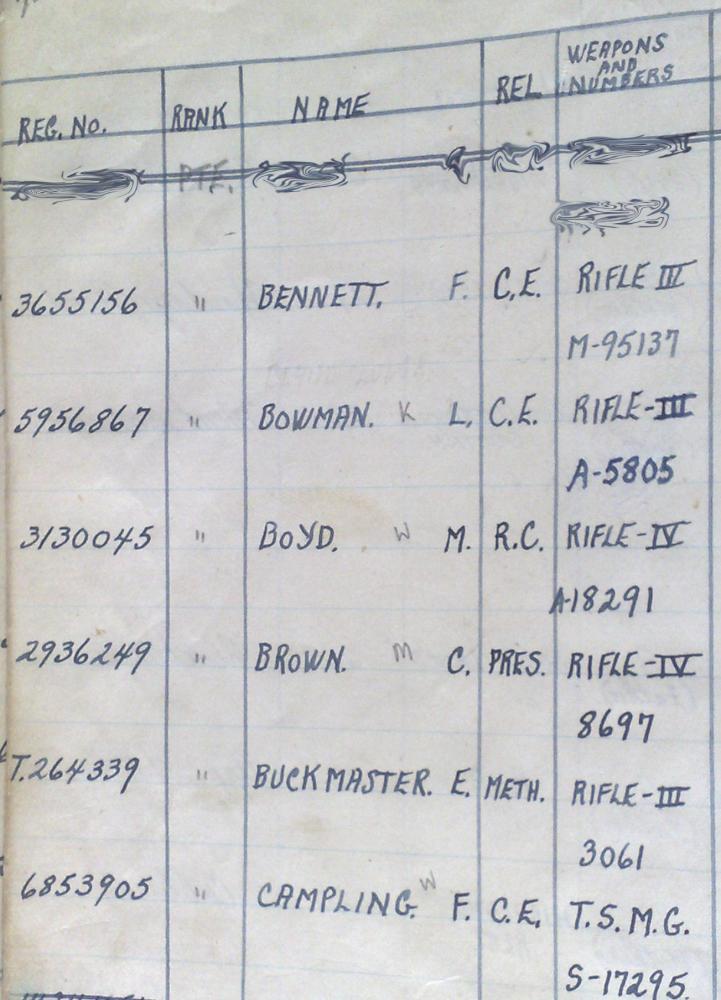 REG. NO. RANK NAME REL WEAPONS AND NUMBERS
PTE.
3655156 " BENNETT. F. C.E. RIFLE III
M-95137
5956867 " BOWMAN. K L. C.E. RIFLE-III
A-5805
3130045 " BOYD. W M. R.C. RIFLE-IV
A-18291
2936249 " BROWN. M C. PRES. RIFLE-IV
8697
T.264339 " BUCKMASTER. E. METH. RIFLE-III
3061
6853905 " CAMPLING. W F. C.E. T.S.M.G.
S-17295